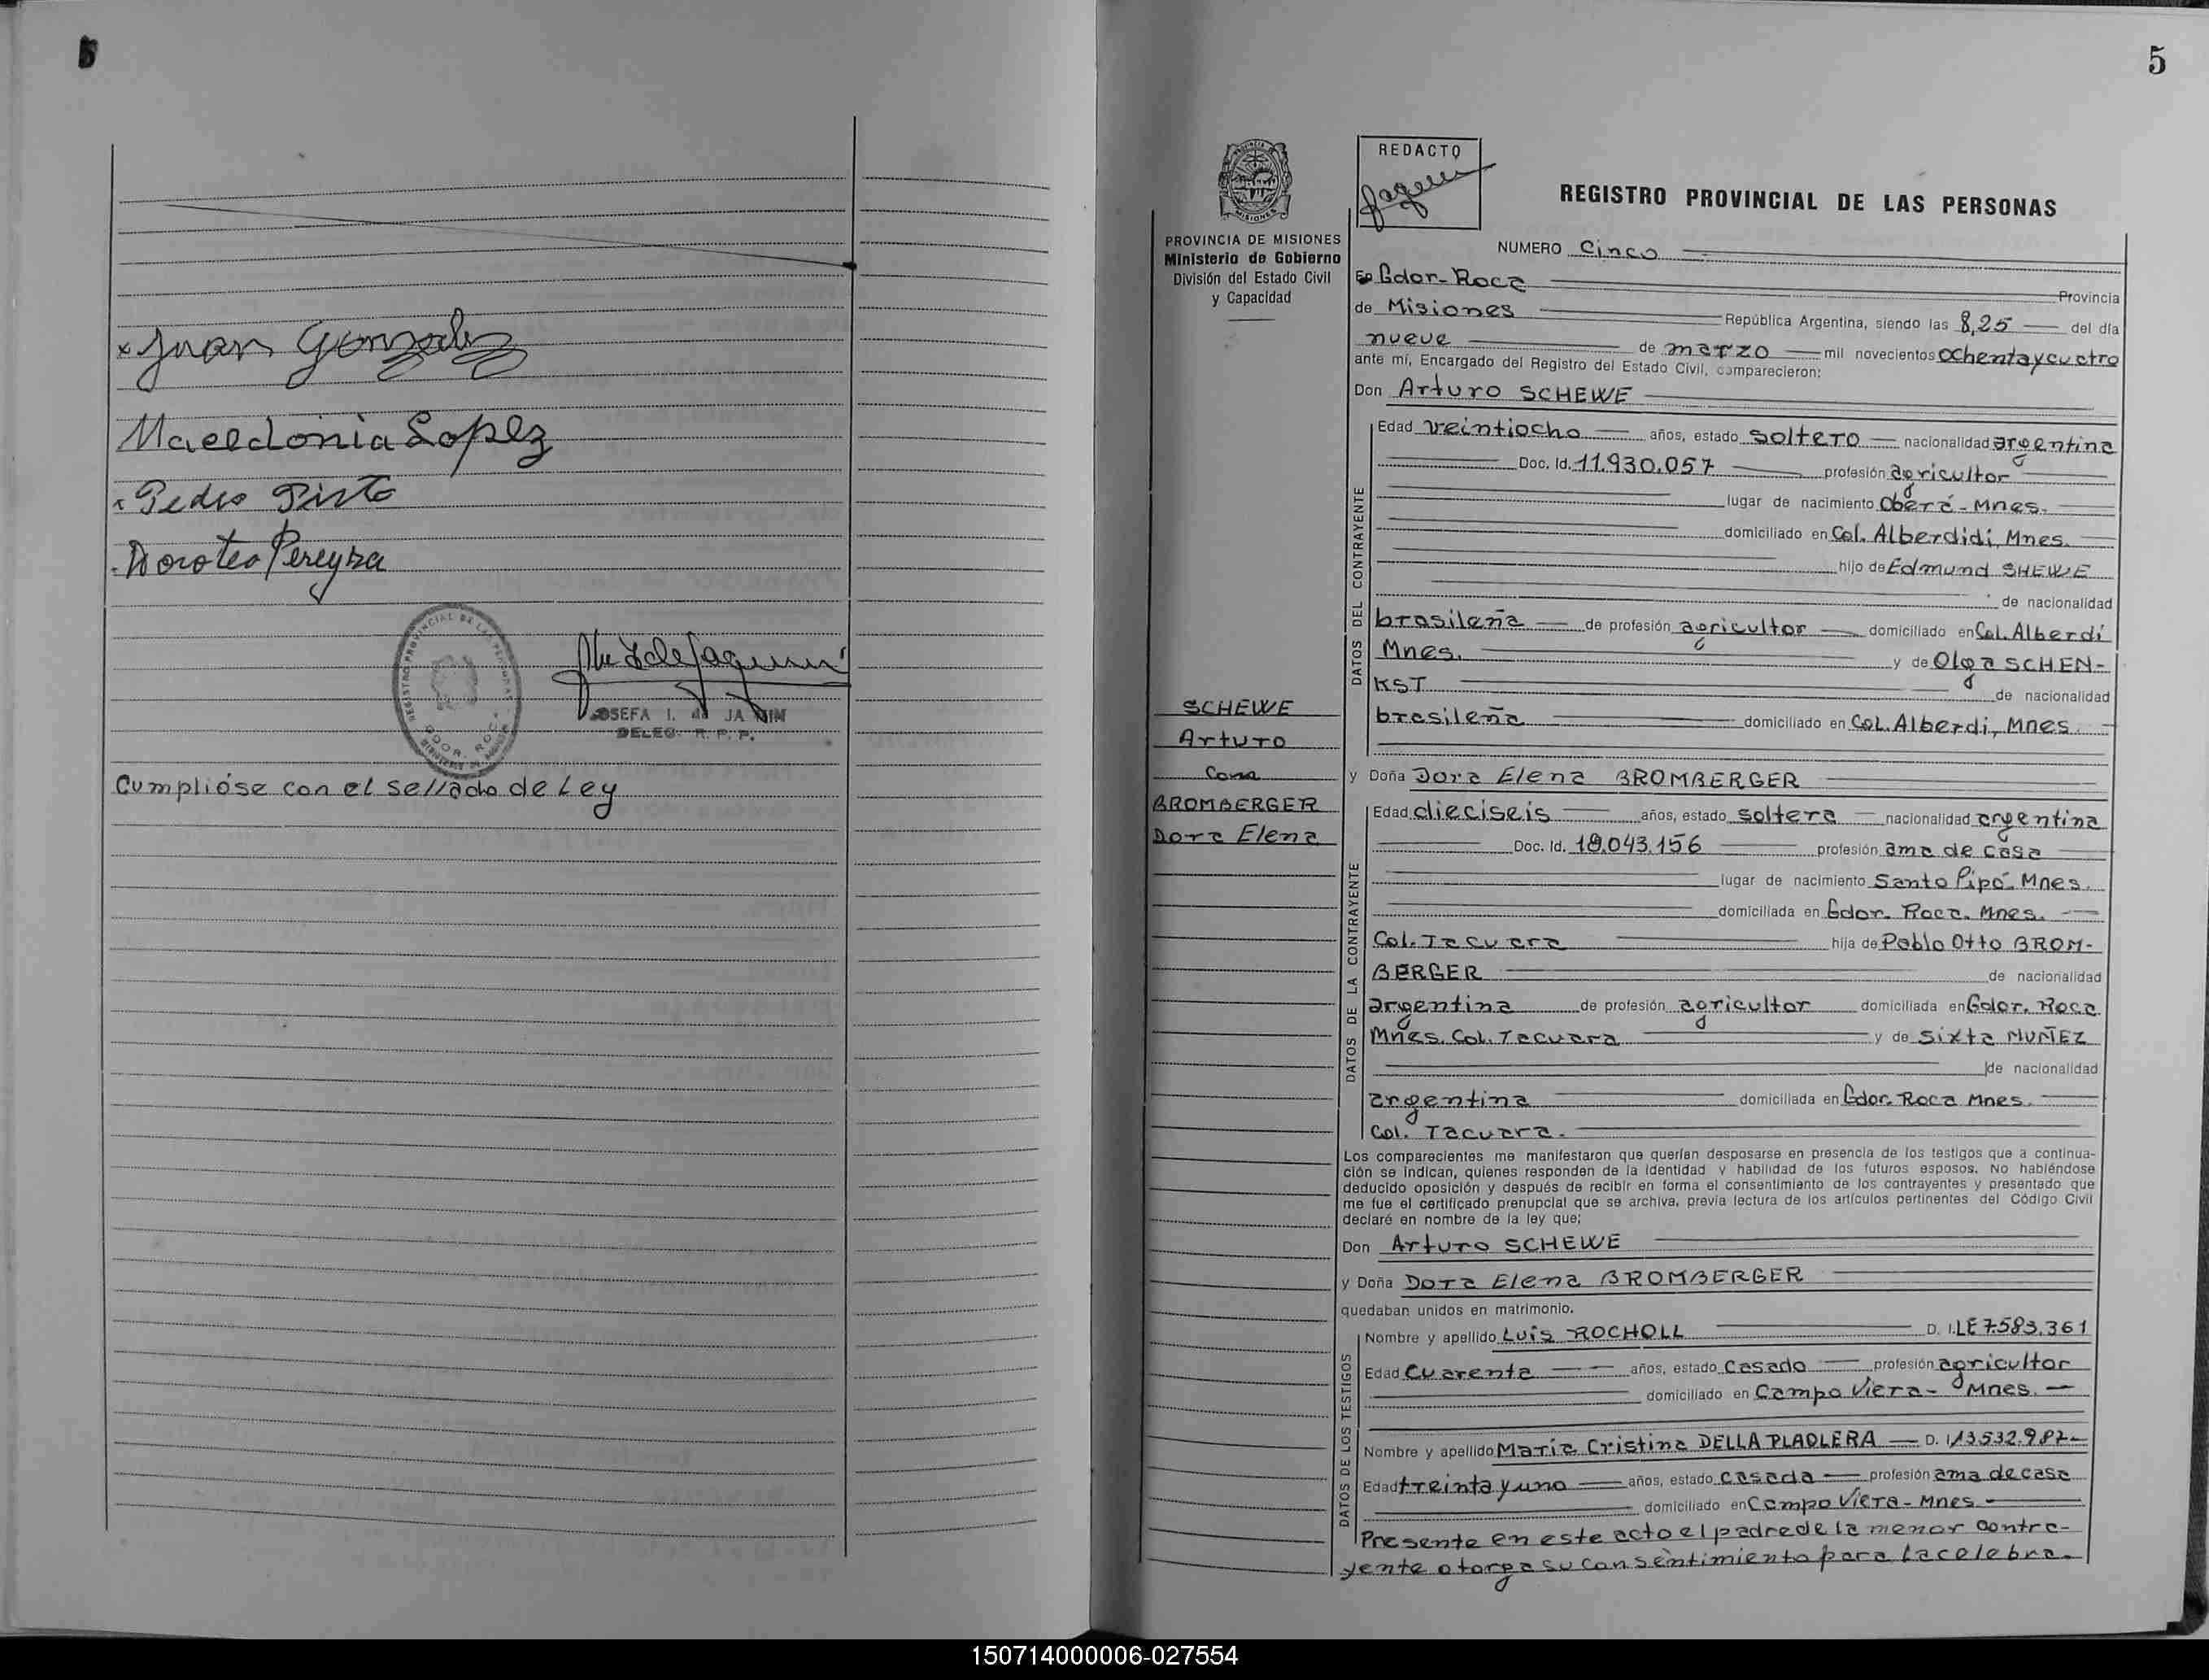 5
Juan Gonzalez
Macedonia Lopez
Pedro Pinto
Doroteo Pereyra
REGISTRO PROVINCIAL DE LAS PERSONAS
GDOR. ROCA
JOSEFA I. de JA
DELEG. R. P. P.
Cumplióse con el sellado de Ley
5
PROVINCIA DE MISIONES
Ministerio de Gobierno
División del Estado Civil
y Capacidad
SCHEWE
Arturo
Con
BROMBERGER
Dora Elena
REDACTO
REGISTRO PROVINCIAL DE LAS PERSONAS
NUMERO Cinco
En Gdor-Roca Provincia
de Misiones República Argentina, siendo las 8,25 del día
nueve de marzo mil novecientos ochenta y cuatro
ante mí, Encargado del Registro del Estado Civil, comparecieron:
Don Arturo SCHEWE
DATOS DEL CONTRAYENTE
Edad veintiocho años, estado soltero nacionalidad argentina
Doc. Id. 11.930.057 profesión agricultor
lugar de nacimiento Oberá - Mnes.
domiciliado en Col. Alberdidi, Mnes.
hijo de Edmund SHEWE
de nacionalidad
brasileña de profesión agricultor domiciliado en Col. Alberdi
Mnes. y de Olga SCHEN-
KST de nacionalidad
brasileña domiciliado en Col. Alberdi, Mnes.
y Doña Dora Elena BROMBERGER
DATOS DE LA CONTRAYENTE
Edad dieciseis años, estado soltera nacionalidad argentina
Doc. Id. 18.043.156 profesión ama de casa
lugar de nacimiento Santo Pipó. Mnes.
domiciliada en Gdor. Roca. Mnes.
Col. Tacuara hija de Pablo Otto BROM-
BERGER de nacionalidad
argentina de profesión agricultor domiciliada en Gdor. Roca
Mnes. Col. Tacuara y de Sixta MUÑEZ
de nacionalidad
argentina domiciliada en Gdor. Roca Mnes.
Col. Tacuara.
Los comparecientes me manifestaron que querían desposarse en presencia de los testigos que a continua-
ción se indican, quienes responden de la identidad y habilidad de los futuros esposos. No habiéndose
deducido oposición y después de recibir en forma el consentimiento de los contrayentes y presentado que
me fue el certificado prenupcial que se archiva, previa lectura de los artículos pertinentes del Código Civil
declaré en nombre de la ley que;
Don Arturo SCHEWE
y Doña Dora Elena BROMBERGER
quedaban unidos en matrimonio.
DATOS DE LOS TESTIGOS
Nombre y apellido Luis ROCHOLL D. I. LE 7.583.361
Edad Cuarenta años, estado casado profesión agricultor
domiciliado en Campo Viera - Mnes.
Nombre y apellido Maria Cristina DELLA PLADLERA D. I. 13.532.987
Edad treinta y uno años, estado casada profesión ama de casa
domiciliado en Campo Viera - Mnes
Presente en este acto el padre de la menor contra-
yente otorga su consentimiento para la celebra-
150714000006-027554